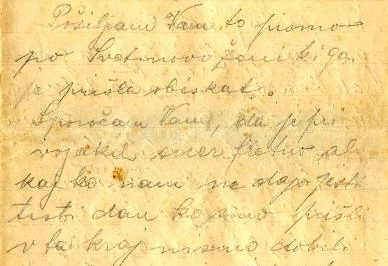 Pošiljam Vam to pismo
po Svetinovo ženi ki ga
je prišla obiskat.
Sporočam Vam, da je pri
vojakih sicer fletno ali
kaj ko nam ne dajo jesti
tisti dan ko smo prišli
v ta kraj nismo dobili